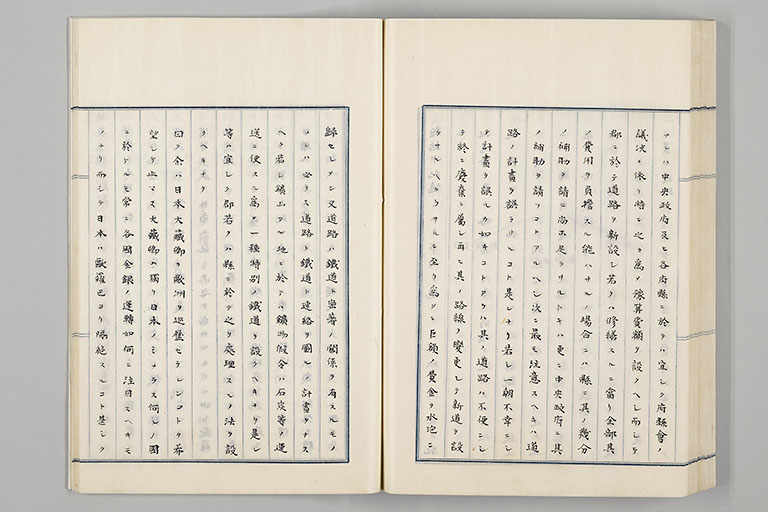 ナレハ中央政府及ヒ各府縣ニ於テハ宜シク府縣會ノ
議決ニ依リ時ニ之カ為メ豫算費額ヲ設クヘシ而シテ
郡ニ於テ道路ヲ新設シ若クハ修繕スルニ當リ全部其
ノ費用ヲ負擔スル能ハサルノ場合ニハ縣ニ其ノ幾分
ノ補助ヲ請ヒ尚ホ足ラサルトキハ更ニ中央政府ニ其
ノ補助ヲ請フコトアルヘシ次ニ最モ注意スヘキハ道
路ノ計畫ヲ誤ラサルコト是レナリ若シ一朝不幸ニシ
テ計畫ヲ誤ルカ如キコトアラハ其ノ道路ハ不便ニシ
テ終ニ廢棄ニ屬シ再ヒ其ノ路線ヲ變更シテ新道ヲ設
ケサルヘカラサルニ至リ為メニ巨額ノ費金ヲ水泡ニ
歸セシメン又道路ハ鐵道ト密著ノ關係ヲ有スルモノ
ナレハ必ラス道路ト鐵道ト連絡ヲ圖ルノ計畫ヲナス
ヘク若シ鑛山アルノ地ニ於テハ鑛物假令ハ石炭等ノ運
送ニ便スル為メ一種特別ノ鐵道ヲ設クヘキナリ是レ
等ハ宜シク郡若クハ縣ニ於テ之ヲ處理スルノ法ヲ設
クヘキナリ
因ク余ハ日本大藏卿ヲ歐洲ヲ巡歷セラレンコトヲ希
望シテ止マス大藏卿ハ獨リ日本ノミナラス何レノ國
ニ於テルモ常ニ各國金銀ノ運轉如何ニ注目スヘキモ
ノナリ而シテ日本ハ歐羅巴ヨリ隔絶スルコト甚シク